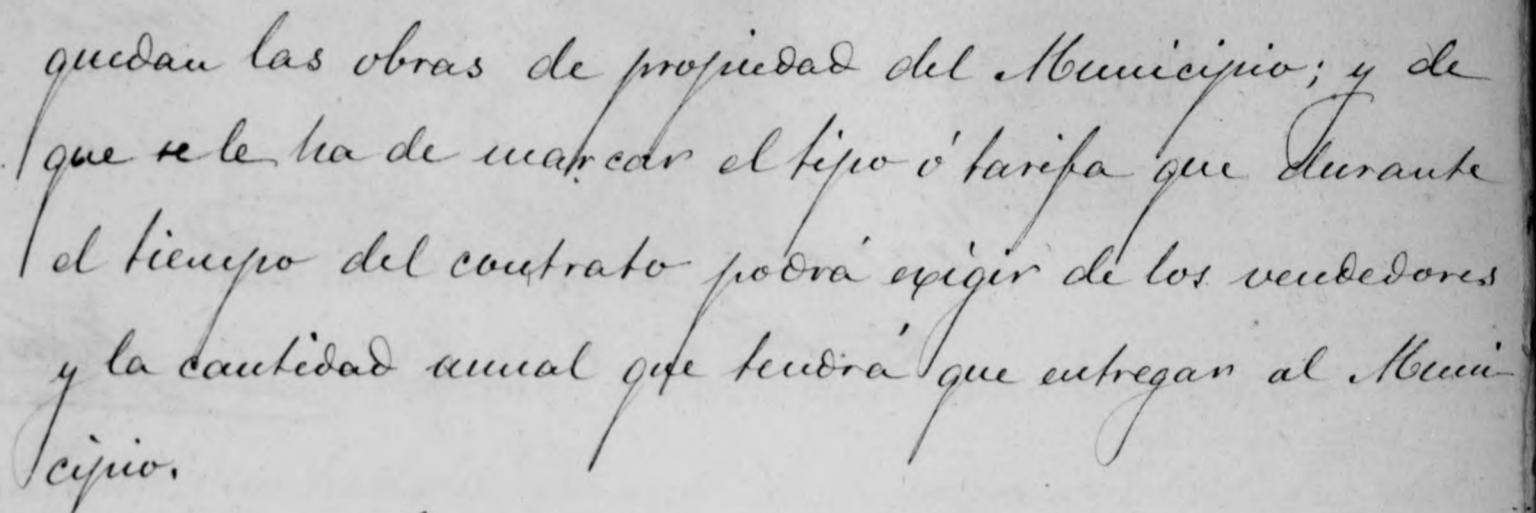 quedan las obras de propiedad del Municipio; y de
que se le ha de marcar el tipo ó tarifa que durante
el tiempo del contrato podrá exigir de los vendedores
y la cantidad anual que tendrá que entregar al Muni-
cipio.